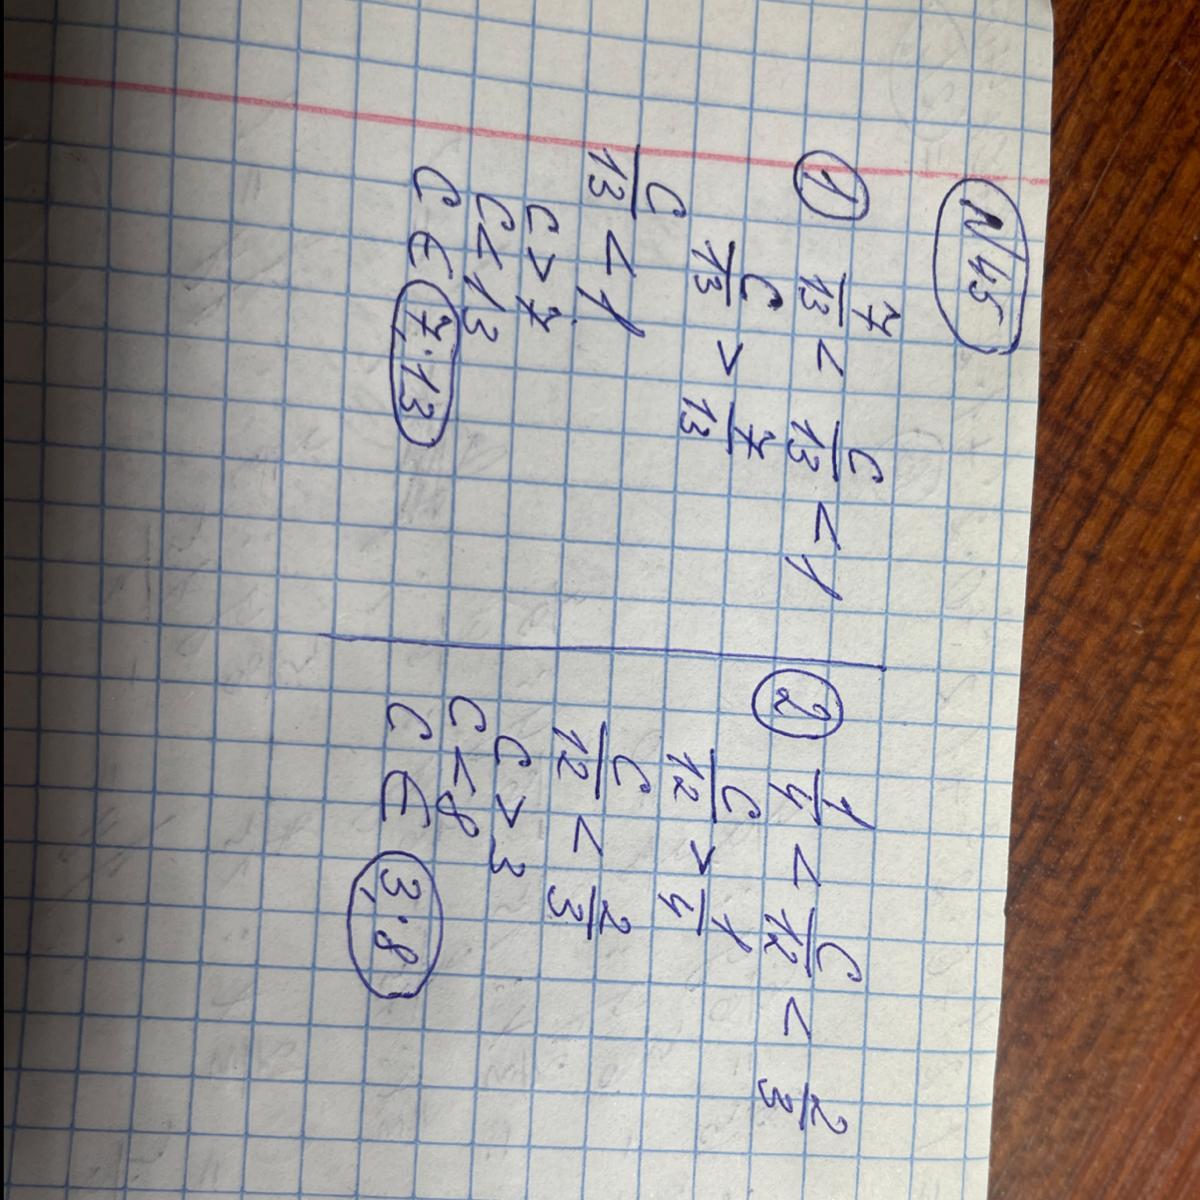 N45
① 7/13 < C/13 < 1
C/13 > 7/13
C/13 < 1
C > 7
C < 13
C ∈ 7; 13
② 1/4 < C/12 < 2/3
C/12 > 1/4
C/12 < 2/3
C > 3
C < 8
C ∈ 3; 8